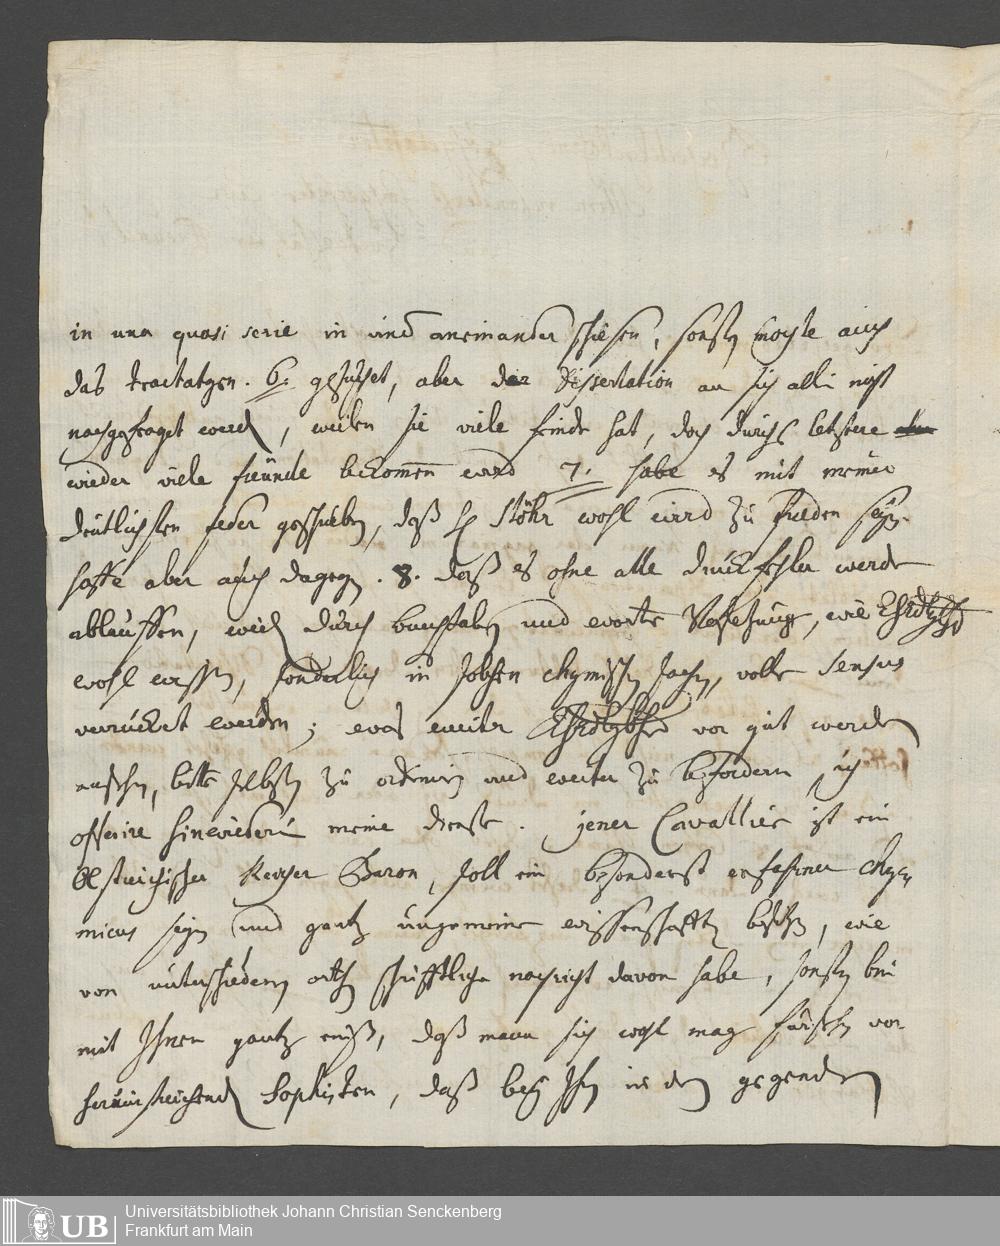 in una quasi serie in und aneinander schiesen, sonsten mochte auch
das tractatgen. 6. gesuchet, aber der Dissertation an sich allein nicht
nachgefraget werden, weilen sie viele feinde hat, doch durch letztere
wieder viele freünde bekomen wird 7. habe es mit meiner
deütlichsten feder geschrieben, daß H Stöhr wohl wird zu frieden seyn.
hoffe aber auch dagegen. 8. daß es ohne alle druckfehler werde
ablauffen, weilen durch buchstaben und worte Versetzung, wie
wohl wissen, sonderlich in solchen chymischen sachen, volle sensus
verrücket werden; was weiter vor gut werden
ansehen, bitte selbsten zu ordiniren und weiter zu befördern, ich
offerire hinwiederum meine dienste. jener Cavallier ist ein
Oestreichischer Baron, soll ein besonderst erfahrner chy-
micus seyn und gantz ungemeine wissenschafften besitzen, wie
von unterschiedenen orthen schrifftliche nachricht davon habe, sonsten bin
mit Ihnen gantz eins, daß mann sich wohl mag fürsehen vor
herumstreichenden Sophisten, daß bey Ihnen in den gegenden
Universitätsbibliothek Johann Christian Senckenberg
UB Frankfurt am Main